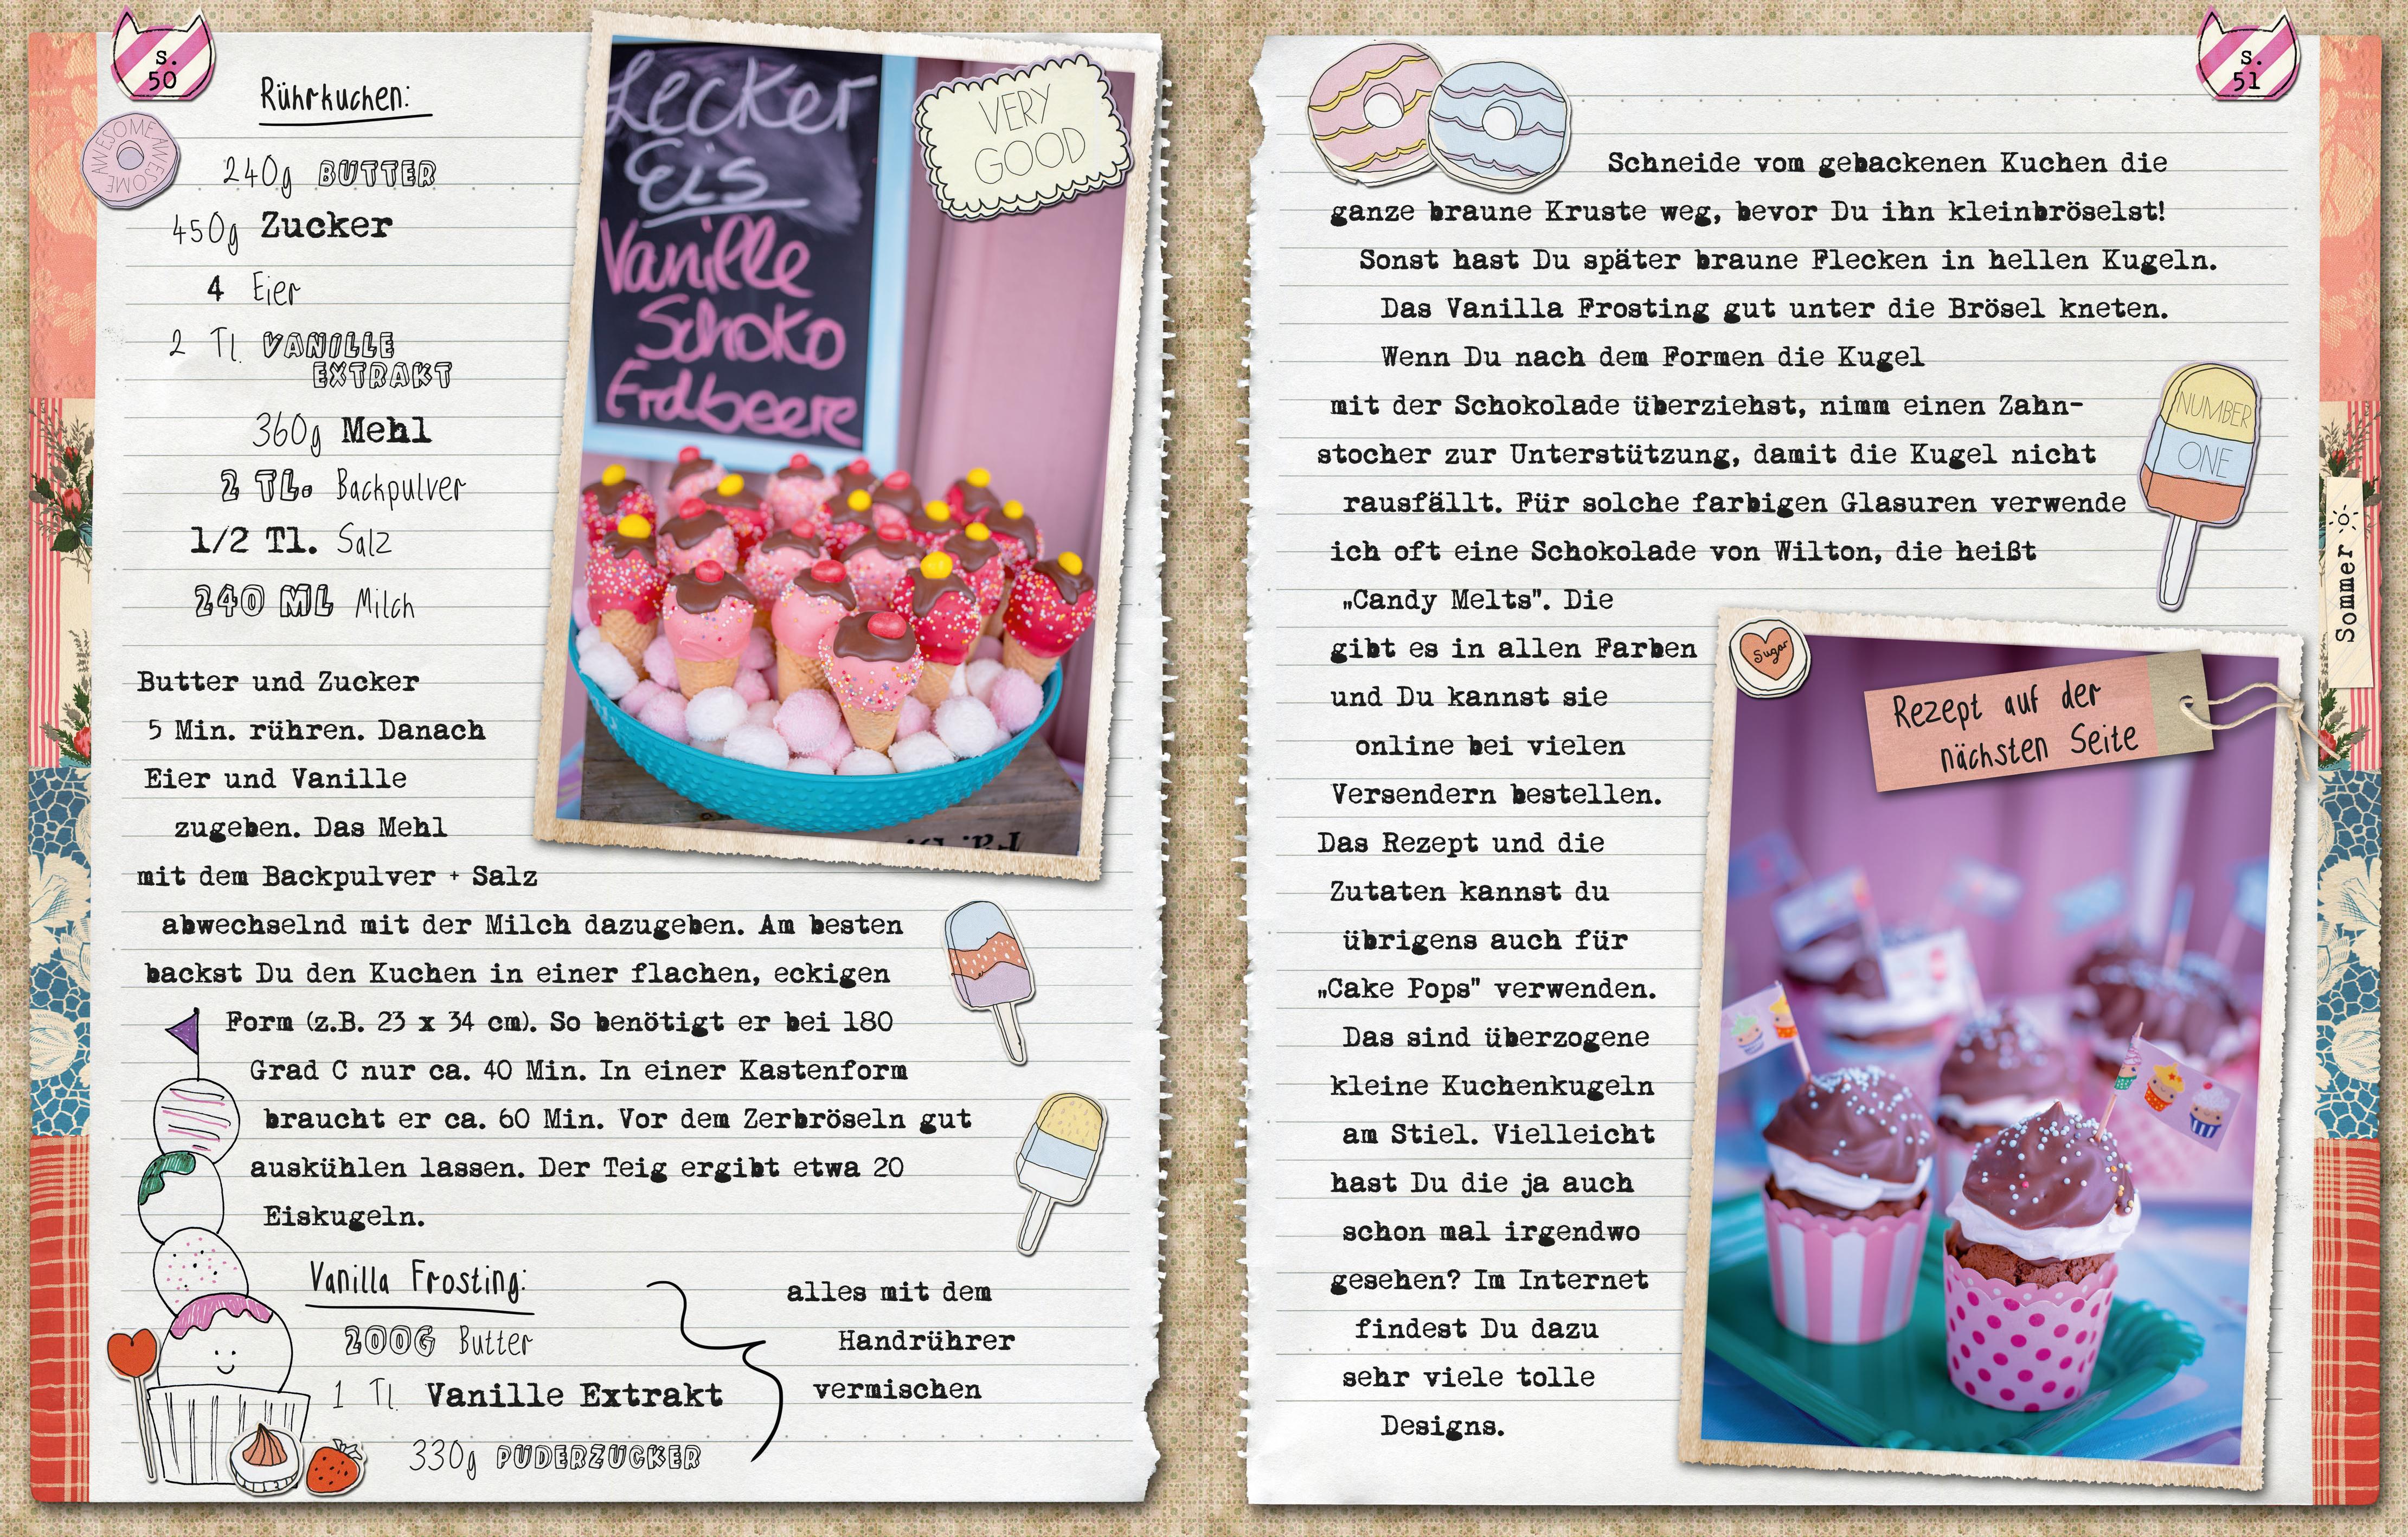 s.
50
Rührkuchen:
AWESOME AWESOME AWESOME
240g BUTTER
450g Zucker
4 Eier
2 Tl. VANILLE
EXTRAKT
360g Mehl
2 TL. Backpulver
1/2 Tl. Salz
240 ML Milch
Butter und Zucker
5 Min. rühren. Danach
Eier und Vanille
zugeben. Das Mehl
mit dem Backpulver + Salz
abwechselnd mit der Milch dazugeben. Am besten
backst Du den Kuchen in einer flachen, eckigen
Form (z.B. 23 x 34 cm). So benötigt er bei 180
Grad C nur ca. 40 Min. In einer Kastenform
braucht er ca. 60 Min. Vor dem Zerbröseln gut
auskühlen lassen. Der Teig ergibt etwa 20
Eiskugeln.
Vanilla Frosting:
200G Butter
1 Tl. Vanille Extrakt
330g PUDERZUCKER
alles mit dem
Handrührer
vermischen
Lecker
Eis
Vanille
Schoko
Erdbeere
VERY
GOOD
s.
51
Schneide vom gebackenen Kuchen die
ganze braune Kruste weg, bevor Du ihn kleinbröselst!
Sonst hast Du später braune Flecken in hellen Kugeln.
Das Vanilla Frosting gut unter die Brösel kneten.
Wenn Du nach dem Formen die Kugel
mit der Schokolade überziehst, nimm einen Zahn-
stocher zur Unterstützung, damit die Kugel nicht
rausfällt. Für solche farbigen Glasuren verwende
ich oft eine Schokolade von Wilton, die heißt
„Candy Melts". Die
gibt es in allen Farben
und Du kannst sie
online bei vielen
Versendern bestellen.
Das Rezept und die
Zutaten kannst du
übrigens auch für
„Cake Pops" verwenden.
Das sind überzogene
kleine Kuchenkugeln
am Stiel. Vielleicht
hast Du die ja auch
schon mal irgendwo
gesehen? Im Internet
findest Du dazu
sehr viele tolle
Designs.
NUMBER
ONE
Sommer
Sugar
Rezept auf der
nächsten Seite